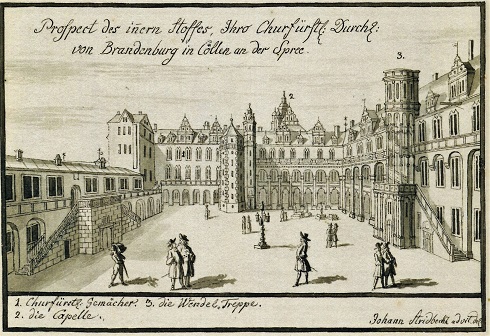 Prospect des inern Hoffes, Ihro Churfürstl: Durchl:
von Brandenburg in Cöllen an der Spree.
2.
3.
1. Churfürstl. Gemächer. 3. die Wendel Treppe.
2. die Capelle.
Johann Stridbeck